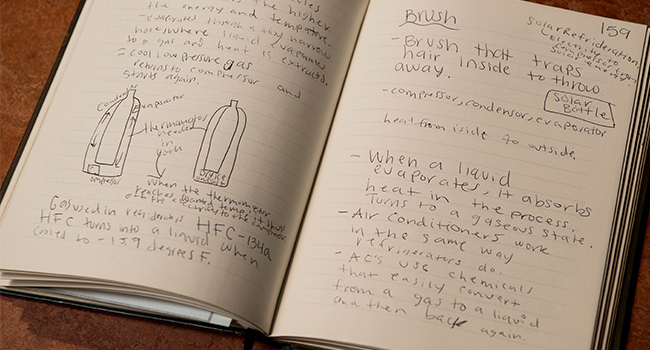 is the higher
the energy and temperature.
- evaporates through a tiny narrow
hole where liquid evaporates
so a gas and heat is extracts.
= cool low pressure gas
returns to compressor and
starts again.
evaporator
thermometer
needed
in
both
compressor
When the thermometer
reaches
Gas used in refridgerators HFC-134a
HFC turns into a liquid when
cooled to -15.9 degrees F.
159
Brush
Solar Refridgeration
- Brush that traps
hair inside to throw
away.
Solar
Bottle
- compressor, condensor, evaporator
heat from iside to outside.
- When a liquid
evaporates, it absorbs
heat in the process.
Turns to a gaseous state.
- Air conditioners work
in the same way
refrigerators do.
- AC's use chemicals
that easily convert
from a gas to a liquid
and then back again.